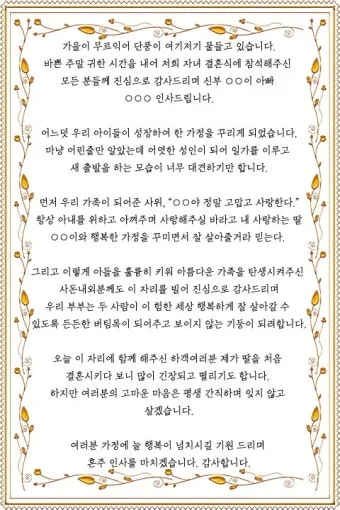 가을이 무르익어 단풍이 여기저기 물들고 있습니다.
바쁜 주말 귀한 시간을 내어 저희 자녀 결혼식에 참석해주신
모든 분들께 진심으로 감사드리며 신부 ○○이 아빠
○○○ 인사드립니다.
어느덧 우리 아이들이 성장하여 한 가정을 꾸리게 되었습니다.
마냥 어린줄만 알았는데 어엿한 성인이 되어 일가를 이루고
새 출발을 하는 모습이 너무 대견하기만 합니다.
먼저 우리 가족이 되어준 사위, "○○야 정말 고맙고 사랑한다."
항상 아내를 위하고 아껴주며 사랑해주실 바라고 내 사랑하는 딸
○○이와 행복한 가정을 꾸미면서 잘 살아줄거라 믿는다.
그리고 이렇게 아들을 훌륭히 키워 아름다운 가족을 탄생시켜주신
사돈내외분께도 이 자리를 빌어 진심으로 감사드리며
우리 부부는 두 사람이 이 험한 세상 행복하게 잘 살아갈 수
있도록 든든한 버팀목이 되어주고 보이지 않는 기둥이 되려합니다.
오늘 이 자리에 함께 해주신 하객여러분 제가 딸을 처음
결혼시키다 보니 많이 긴장되고 떨리기도 합니다.
하지만 여러분의 고마운 마음은 평생 간직하며 잊지 않고
살겠습니다.
여러분 가정에 늘 행복이 넘치시길 기원 드리며
혼주 인사를 마치겠습니다. 감사합니다.